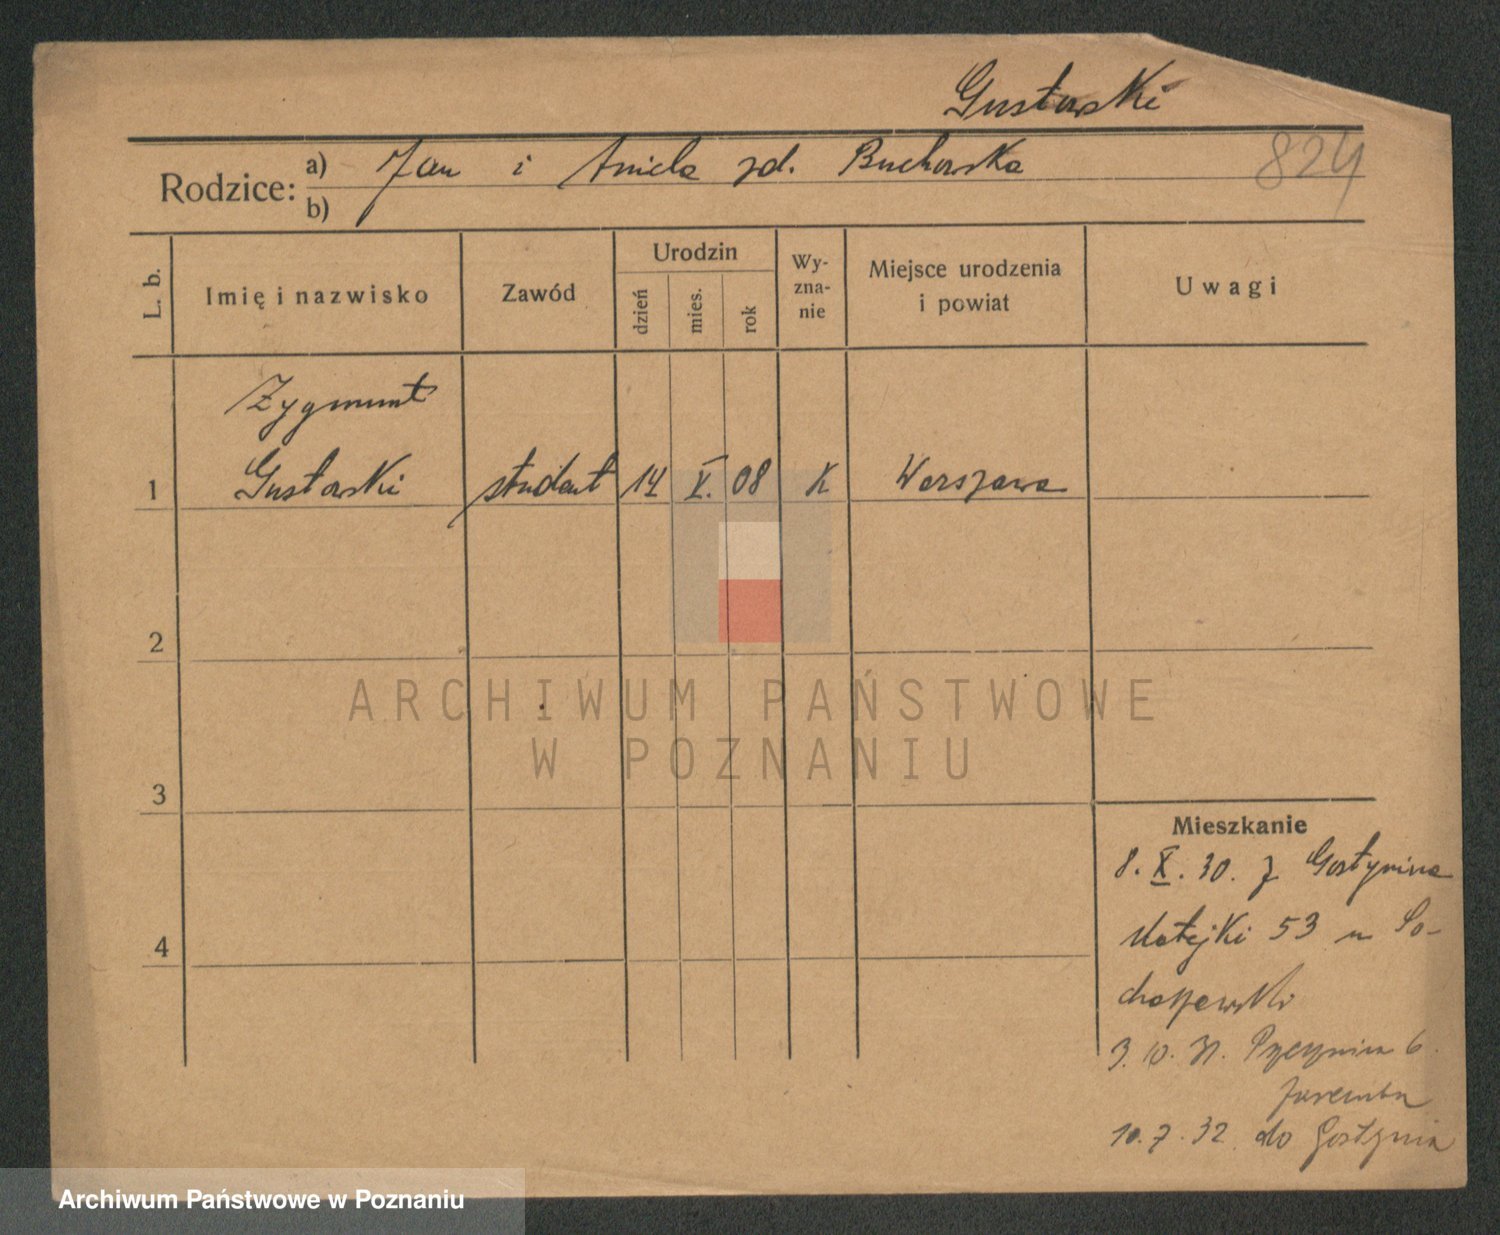 Gustowski
824
Rodzice:
a) Jan i Aniela zd. Buchowska
b)
L. b.
Imię i nazwisko
Zawód
Urodzin
dzień
mies.
rok
Wy-
zna-
nie
Miejsce urodzenia
i powiat
Uwagi
Zygmunt
1 Gustowski student 14 V. 08 K Warszawa
2
3
4
Mieszkanie
8. X. 30. z Gostynina
Matejki 53 u So-
chaszewski
3. 10. 31. 6.
Zaremba
10. 7. 32 do Gostynia
ARCHIWUM PAŃSTWOWE
W POZNANIU
Archiwum Państwowe w Poznaniu